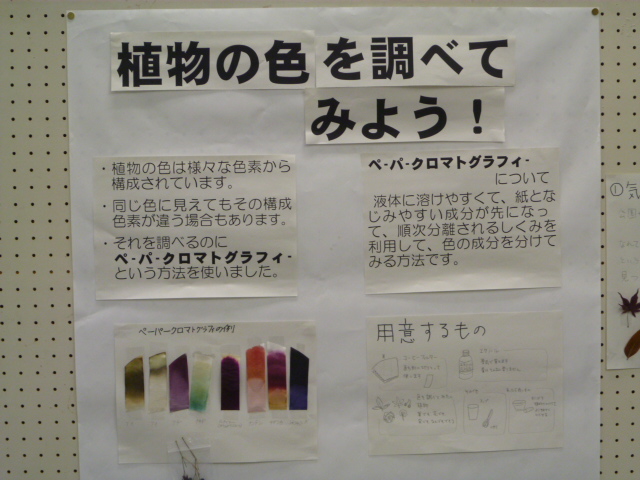 植物の色を調べて
みよう！
・植物の色は様々な色素から
構成されています。
・同じ色に見えてもその構成
色素が違う場合もあります。
・それを調べるのに
ペ-パ-クロマトグラフィ-
という方法を使いました。
ペ-パ-クロマトグラフィ-
について
液体に溶けやすくて、紙とな
じみやすい成分が先になっ
て、順次分離されるしくみを
利用して、色の成分を分けて
みる方法です。
ペーパークロマトグラフの例
用意するもの